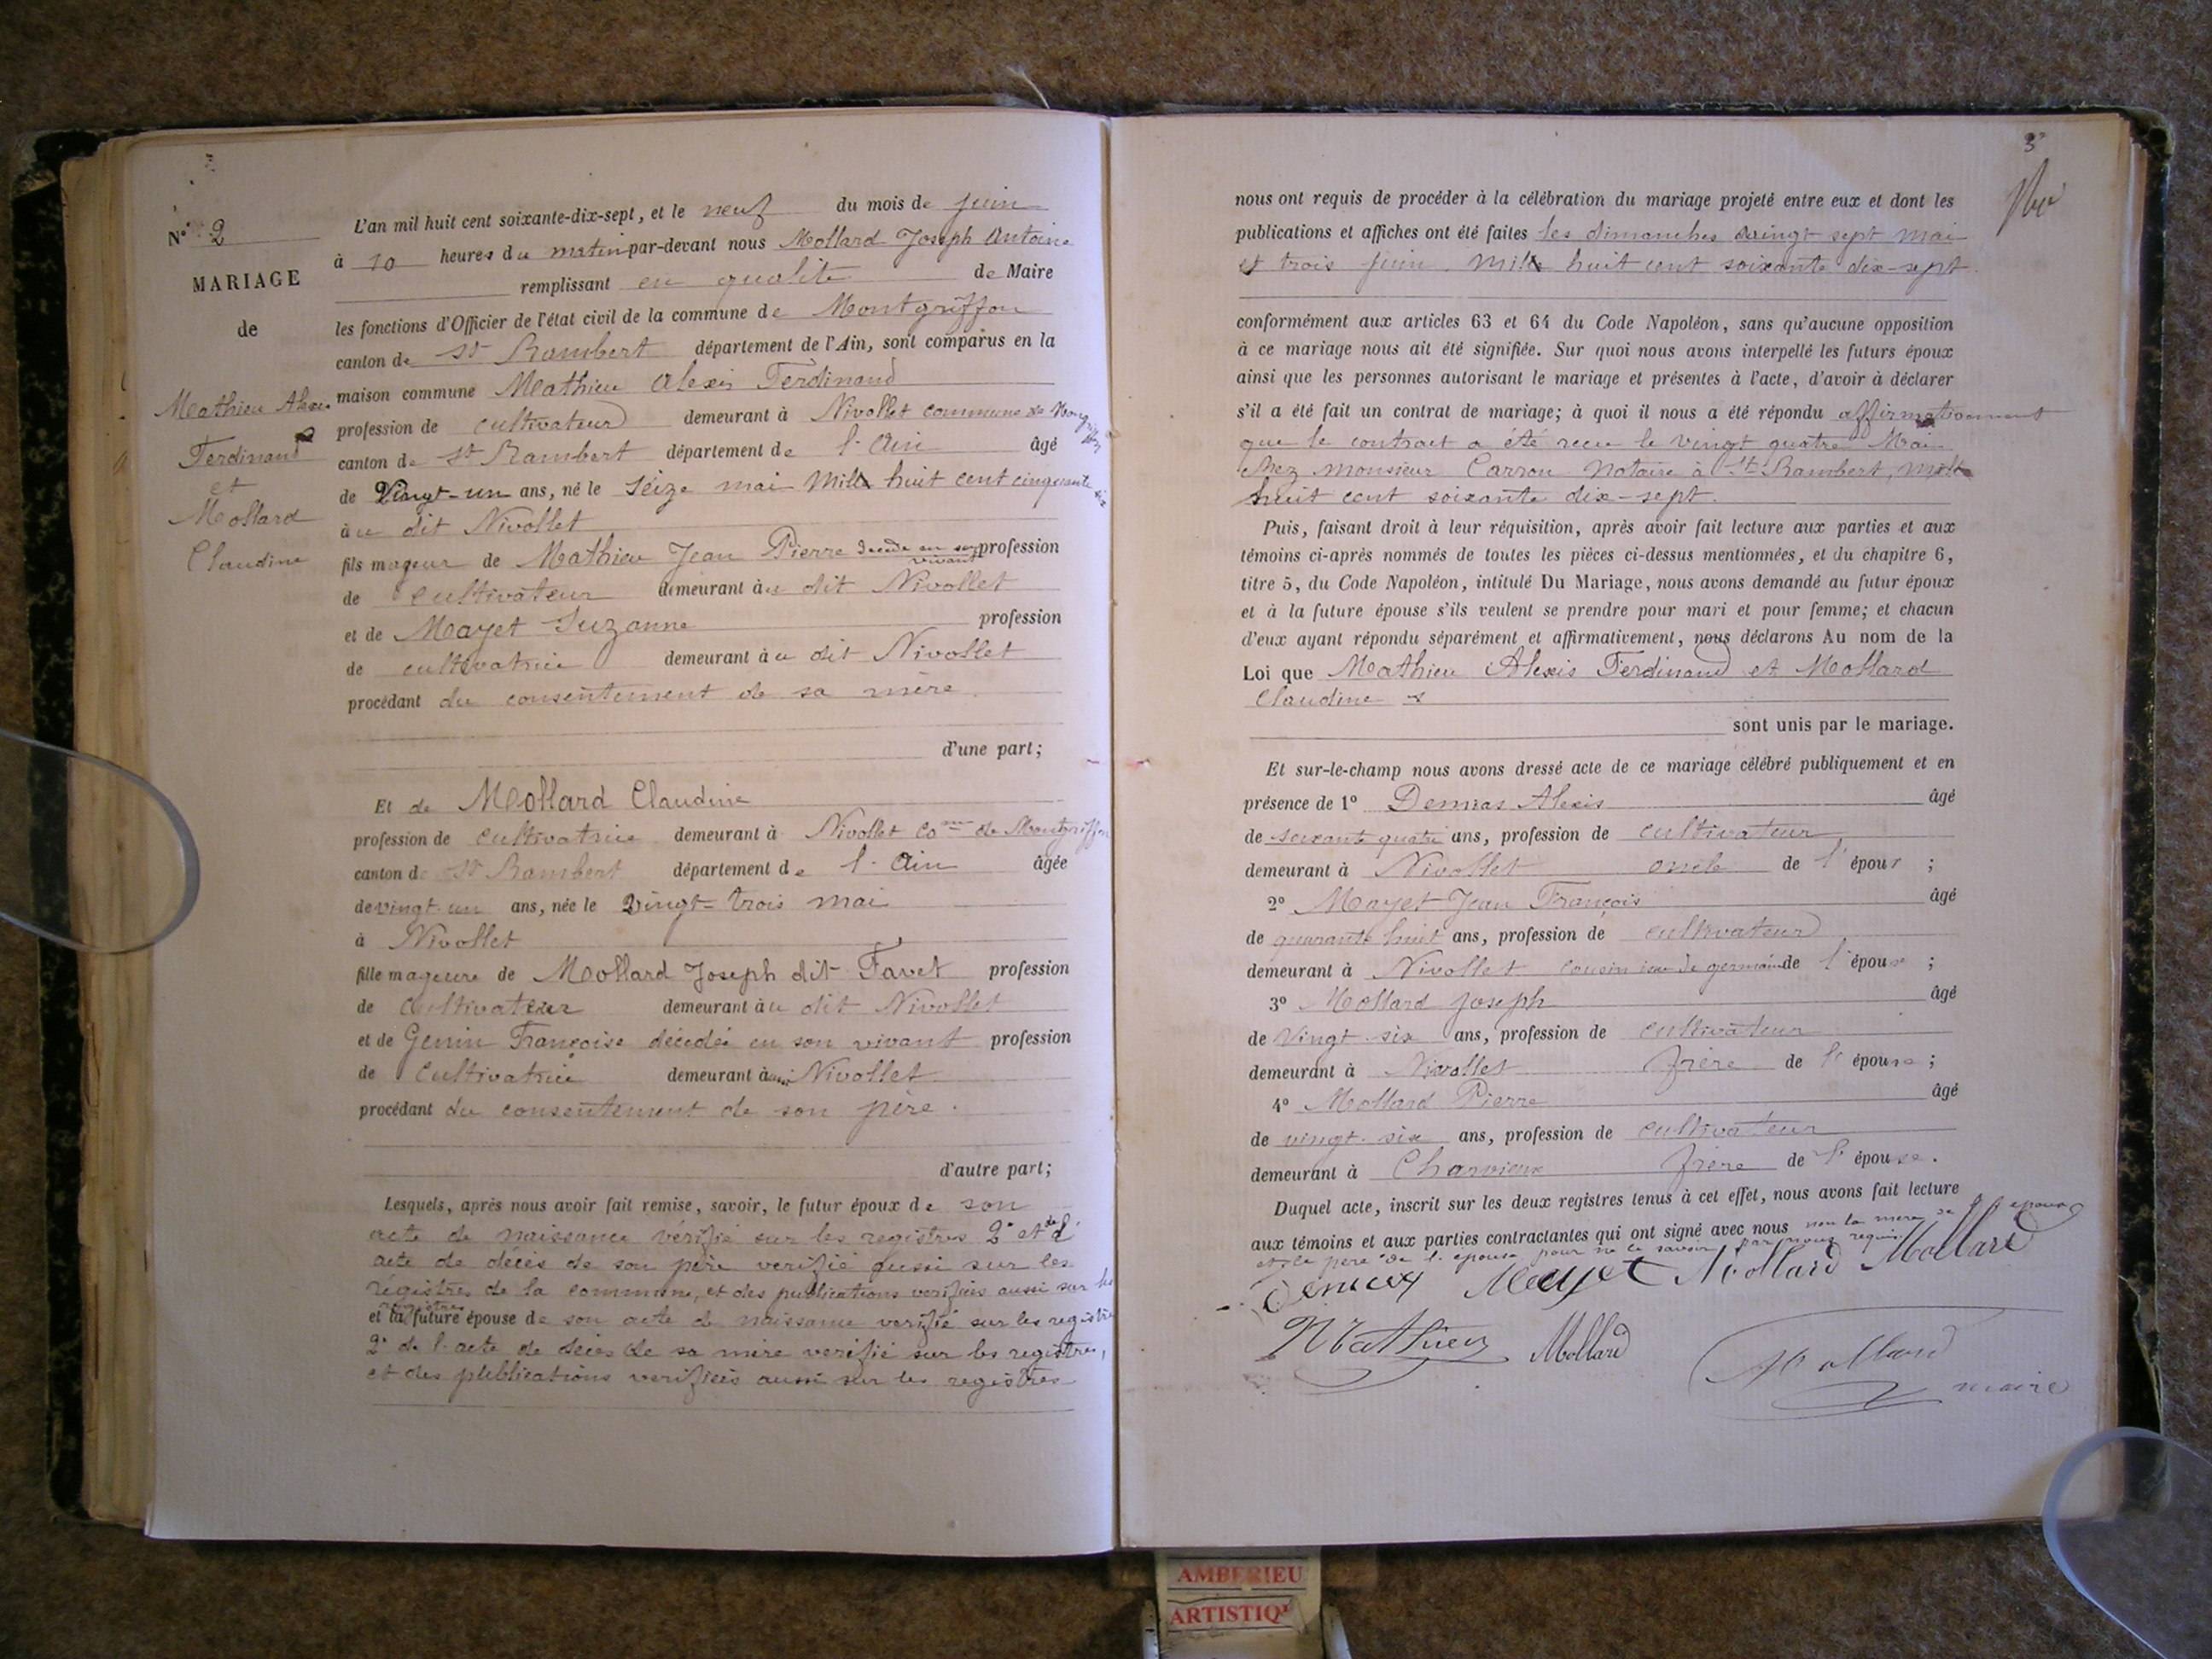 N° 2
MARIAGE
de
Mathieu Alexis
Ferdinand
et
Mollard
Claudine
L'an mil huit cent soixante-dix-sept, et le neuf du mois de juin
à 10 heures du matin par-devant nous Mollard Joseph Antoine
remplissant en qualité de Maire
les fonctions d'Officier de l'état civil de la commune de Montgriffon
canton de St Rambert département de l'Ain, sont comparus en la
maison commune Mathieu Alexis Ferdinand
profession de cultivateur demeurant à Nivollet commune de Montgriffon
canton de St Rambert département de l'Ain âgé
de Vingt-un ans, né le Seize mai Mille huit cent cinquante six
au dit Nivollet
fils mageur de Mathieu Jean Pierre décédé en son vivant profession
de cultivateur demeurant au dit Nivollet
et de Mayet Suzanne profession
de cultivatrice demeurant au dit Nivollet
procédant du consentement de sa mère
d'une part;
Et de Mollard Claudine
profession de cultivatrice demeurant à Nivollet Comne de Montgriffon
canton de St Rambert département de l'Ain âgée
de vingt-un ans, née le Vingt-trois mai
à Nivollet
fille mageure de Mollard Joseph dit Favet profession
de Cultivateur demeurant au dit Nivollet
et de Genin Françoise décédée en son vivant profession
de Cultivatrice demeurant à Nivollet
procédant du consentement de son père.
d'autre part;
Lesquels, après nous avoir fait remise, savoir, le futur époux de son
acte de naissance vérifié sur les registres 2° et de l'
acte de décès de son père verifié aussi sur les
régistres de la commune, et des publications verifiées aussi sur les
registres
et la future épouse de son acte de naissance verifié sur les registres
2° de l'acte de décès de sa mère verifié sur les registres,
et des publications verifiées aussi sur les registres
3
nous ont requis de procéder à la célébration du mariage projeté entre eux et dont les
publications et affiches ont été faites les dimanches vaingt sept mai
et trois juin Mille huit cent soixante dix-sept
conformément aux articles 63 et 64 du Code Napoléon, sans qu'aucune opposition
à ce mariage nous ait été signifiée. Sur quoi nous avons interpellé les futurs époux
ainsi que les personnes autorisant le mariage et présentes à l'acte, d'avoir à déclarer
s'il a été fait un contrat de mariage; à quoi il nous a été répondu affirmativement
que le contract a été recu le vingt quatre Mai
chez monsieur Carron Notaire à St Rambert, mille
huit cent soixante dix-sept.
Puis, faisant droit à leur réquisition, après avoir fait lecture aux parties et aux
témoins ci-après nommés de toutes les pièces ci-dessus mentionnées, et du chapitre 6,
titre 5, du Code Napoléon, intitulé Du Mariage, nous avons demandé au futur époux
et à la future épouse s'ils veulent se prendre pour mari et pour femme; et chacun
d'eux ayant répondu séparément et affirmativement, nous déclarons Au nom de la
Loi que Mathieu Alexis Ferdinand et Mollard
Claudine
sont unis par le mariage.
Et sur-le-champ nous avons dressé acte de ce mariage célébré publiquement et en
présence de 1° Alexis âgé
de soixante quatre ans, profession de cultivateur
demeurant à Nivollet oncle de l'époux ;
2° Mayet Jean François âgé
de quarante huit ans, profession de cultivateur
demeurant à Nivollet cousin germain de l'épouse ;
3° Mollard Joseph âgé
de Vingt-six ans, profession de cultivateur
demeurant à Nivollet frère de l'épouse ;
4° Mollard Pierre âgé
de vingt-six ans, profession de cultivateur
demeurant à Charvieux frère de l'épouse.
Duquel acte, inscrit sur les deux registres tenus à cet effet, nous avons fait lecture
aux témoins et aux parties contractantes qui ont signé avec nous non la mère de l'époux
et le père de l'épouse pour ne le savoir par nous requis.
Mayet Mollard Mollard
Mathieu Mollard Mollard
maire
AMBERIEU
ARTISTIQ